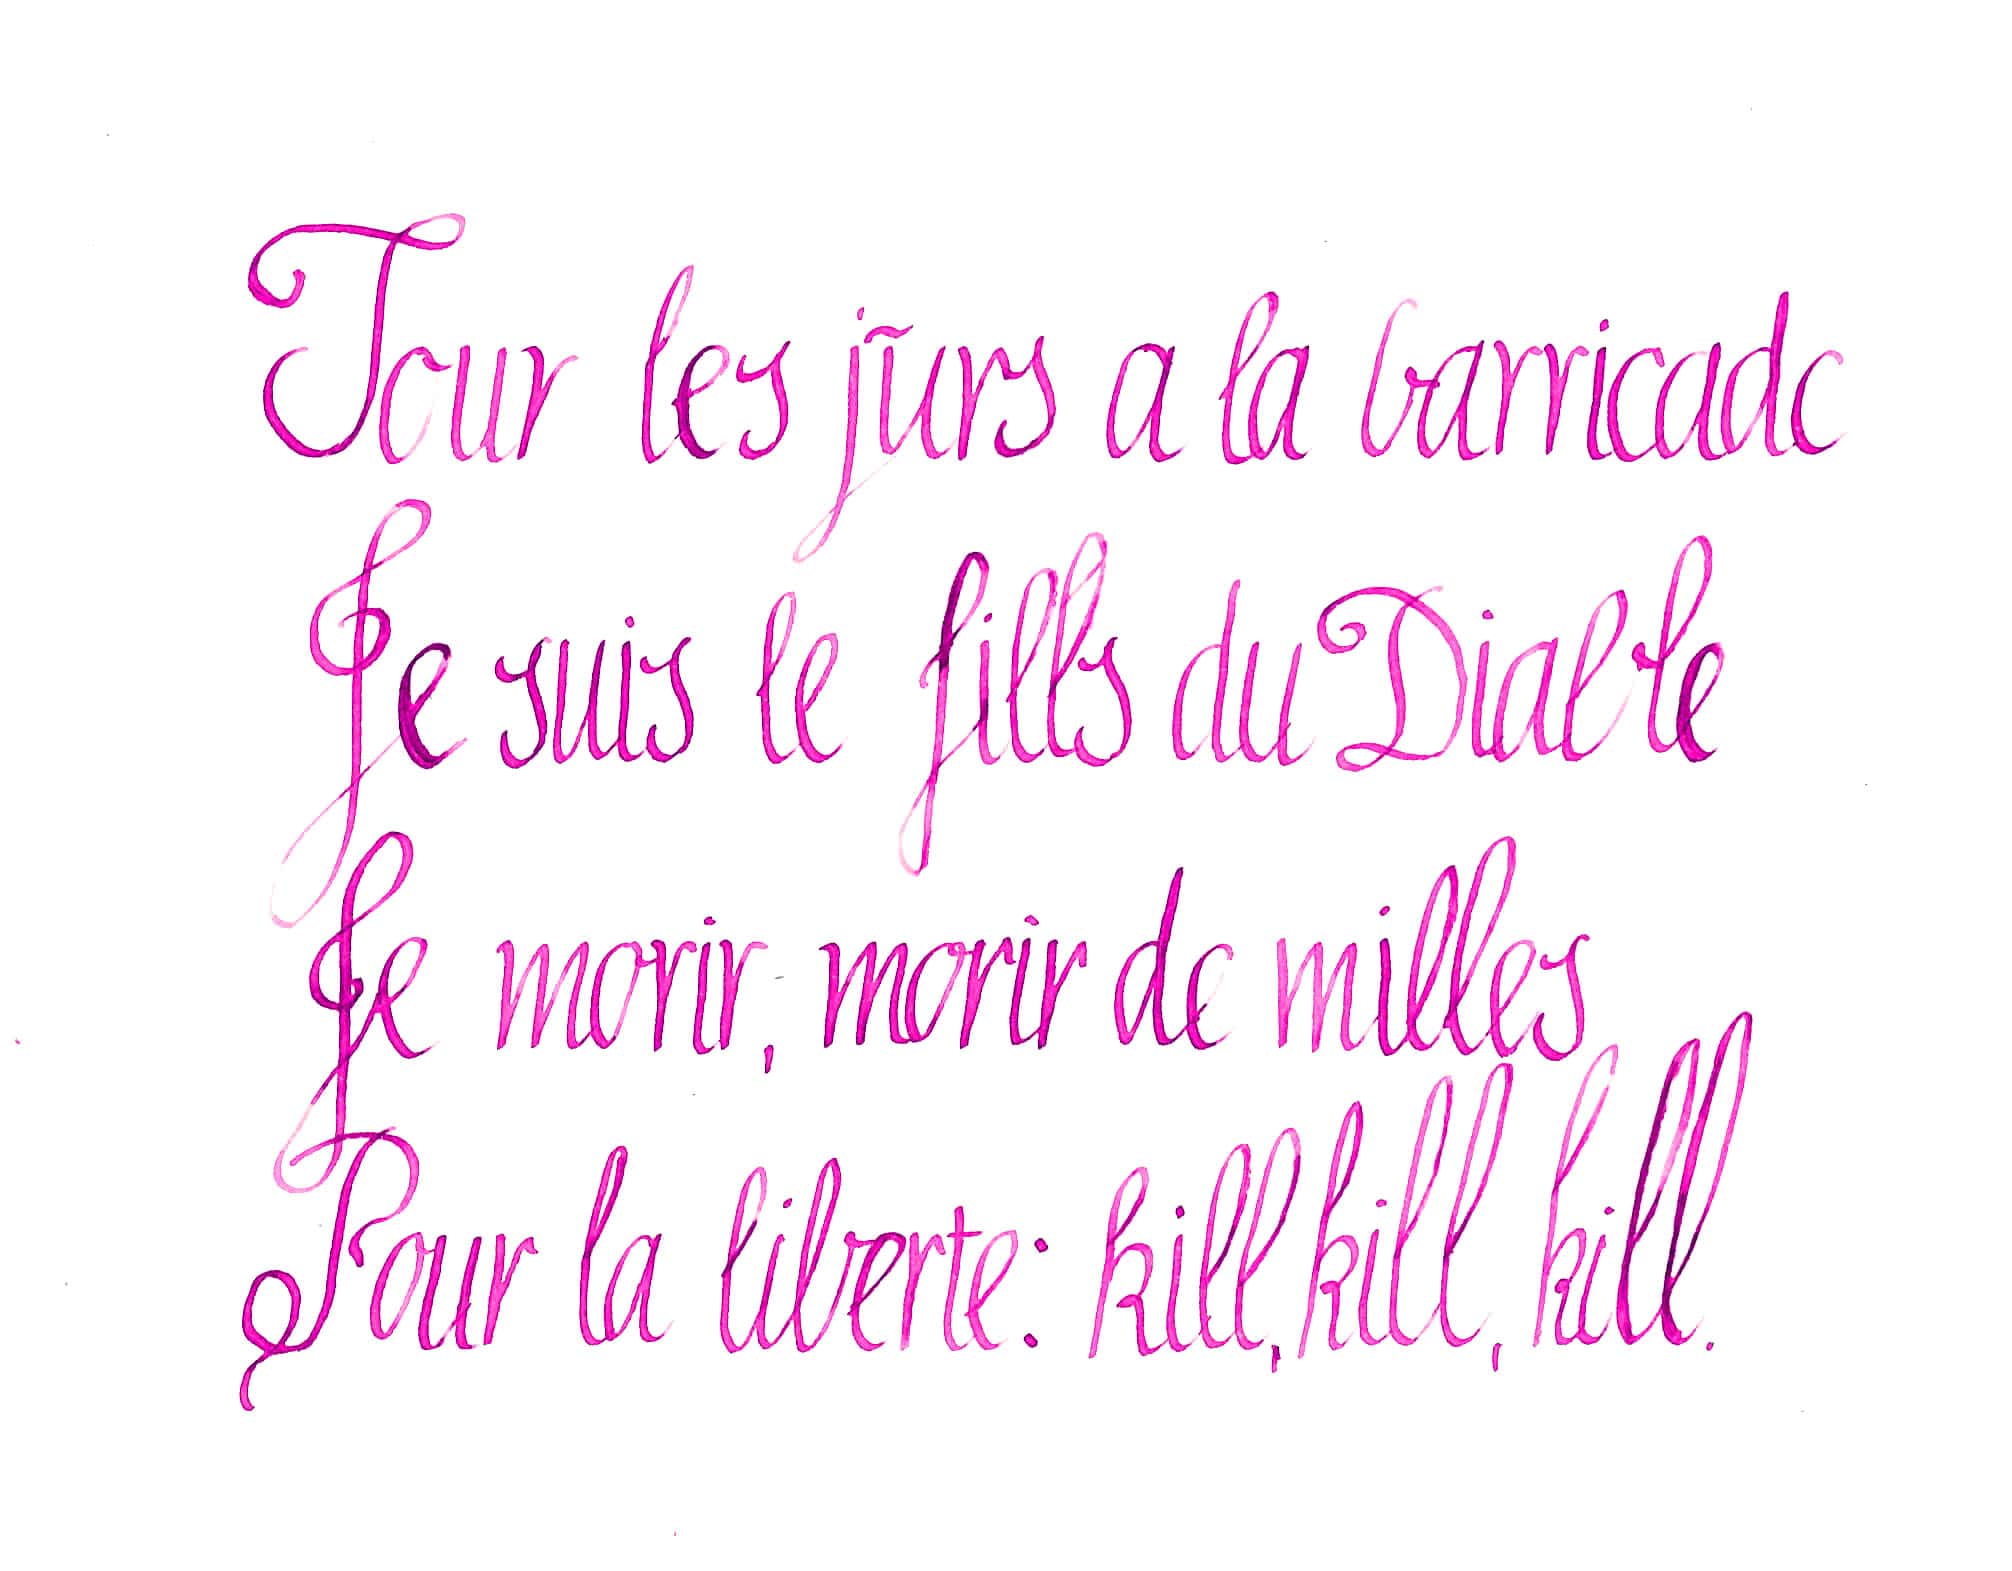 Tour les jũrs a la barricade
Je suis le fills du Diable
Je morir, morir de milles
Pour la liberte: kill, kill, kill.